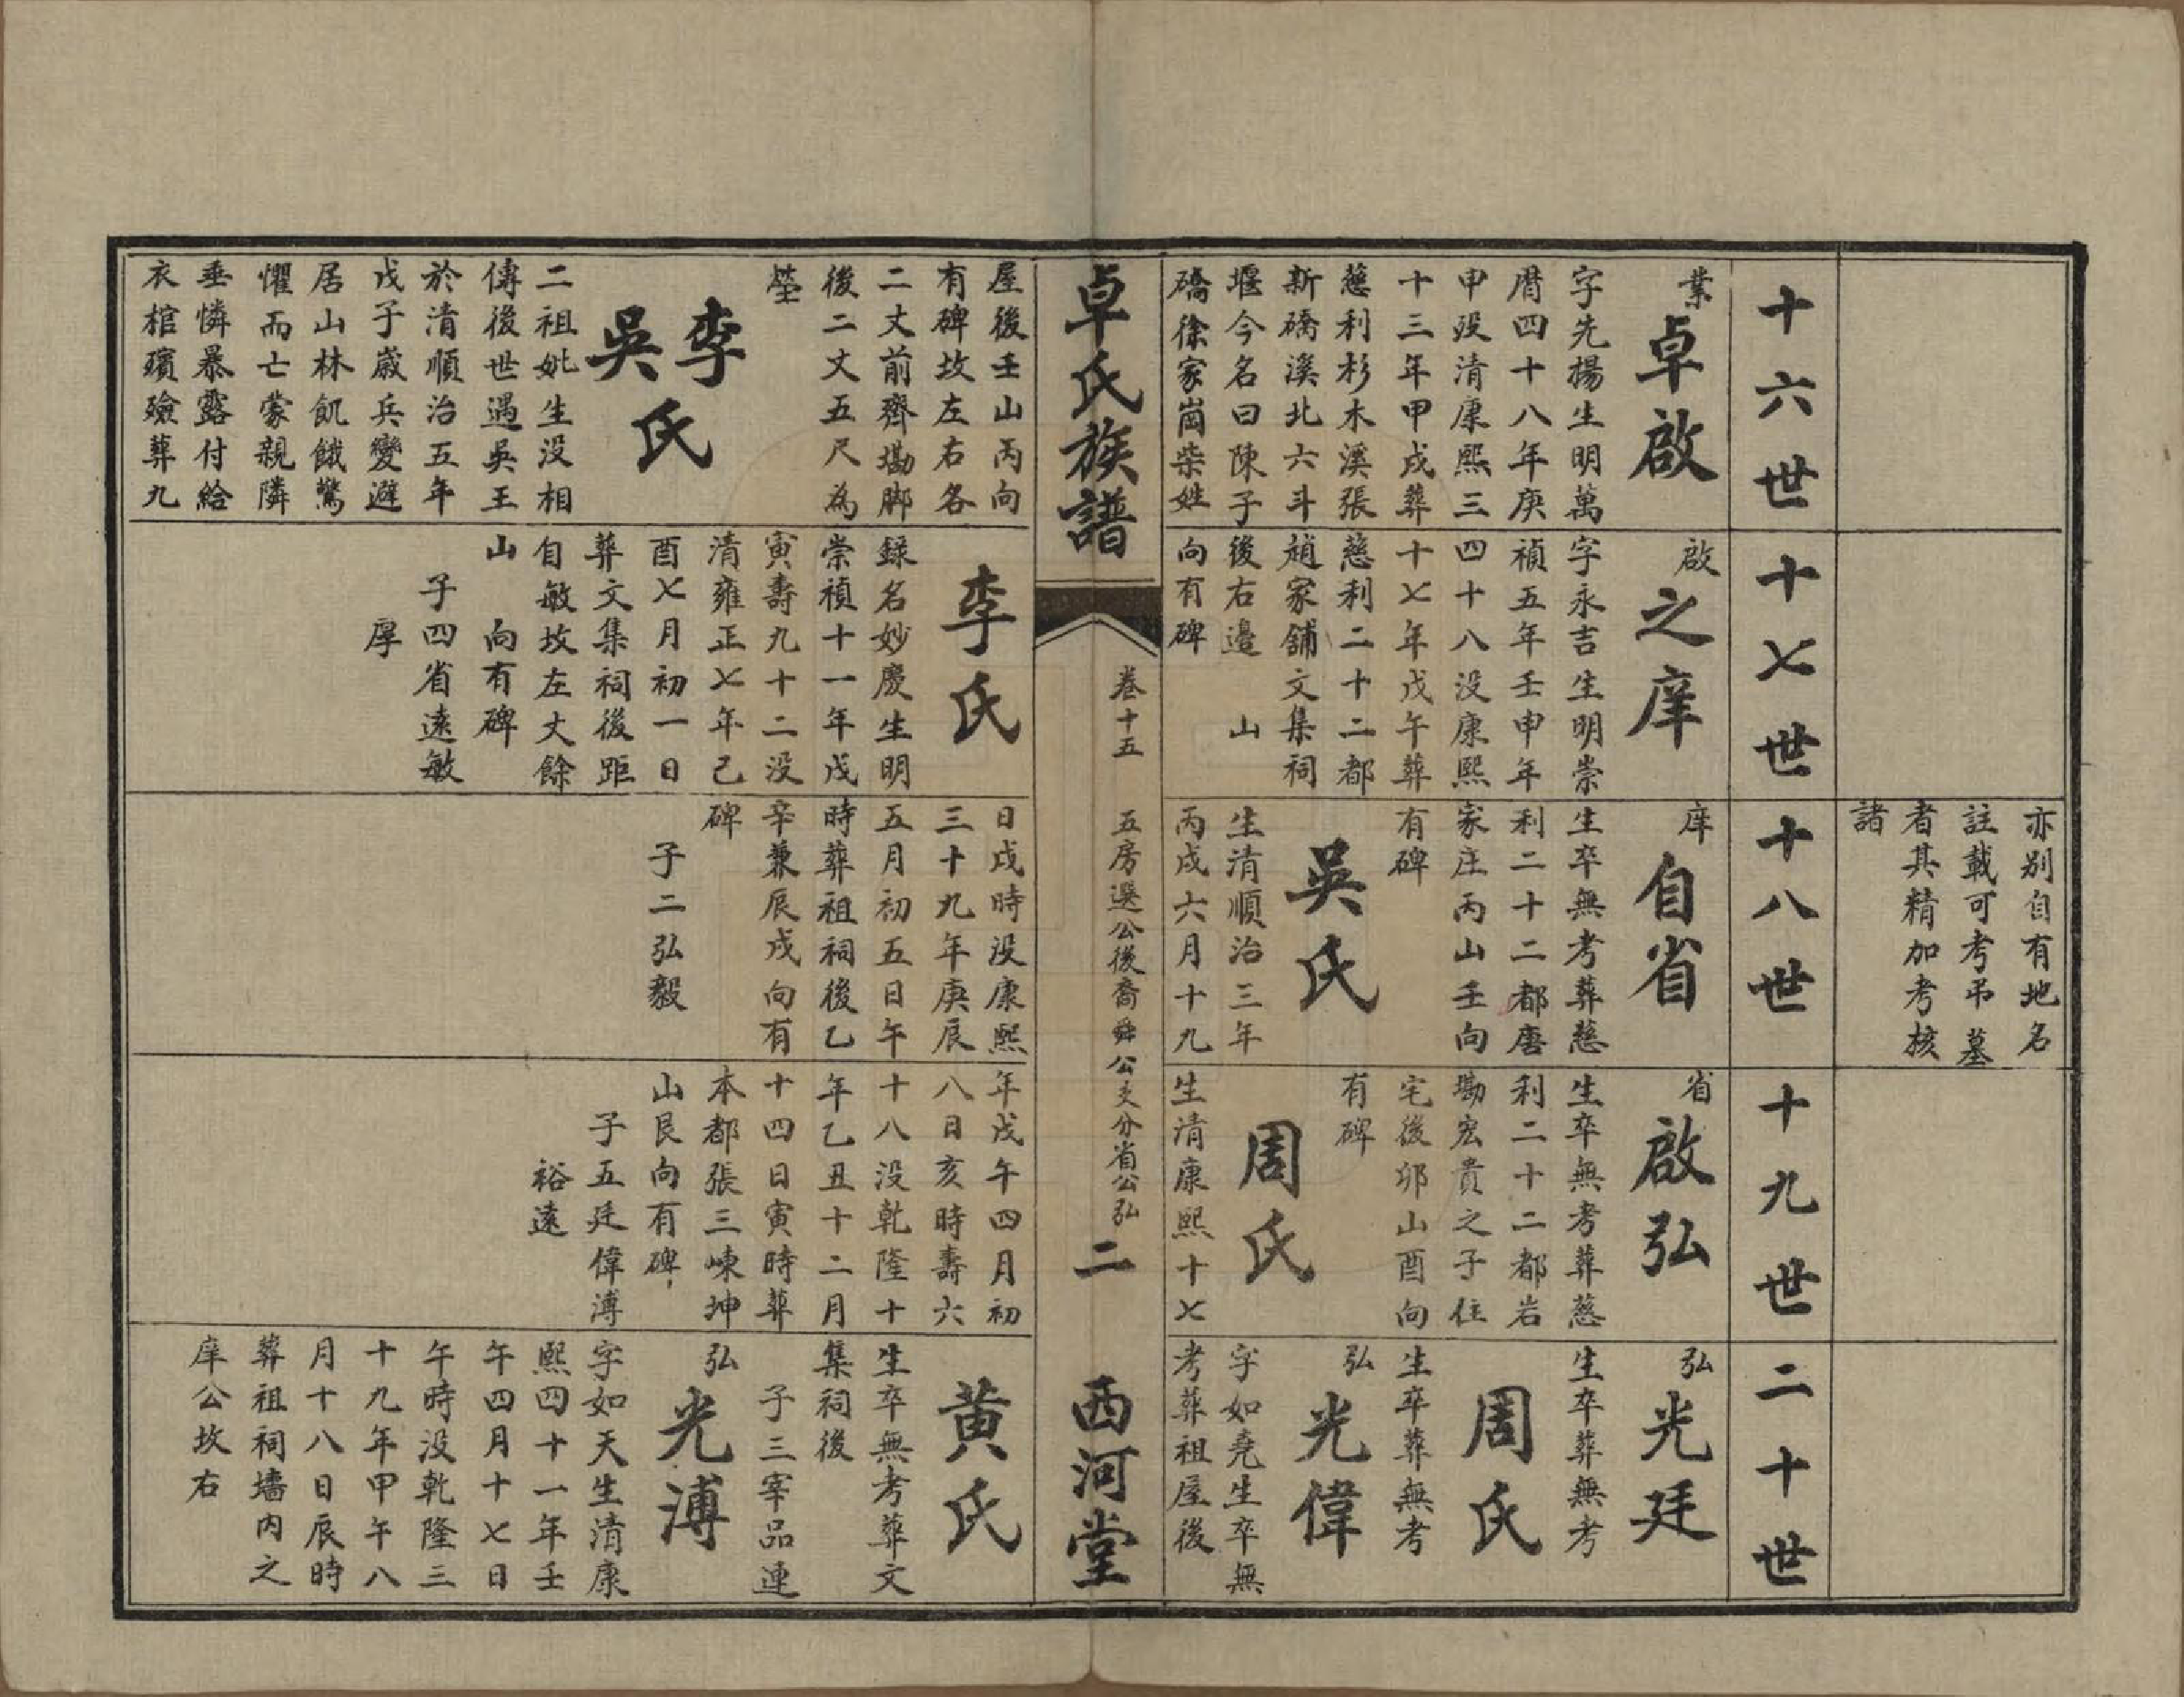 亦別自有地名
註載可考吊墓
者其精加考核
諸
十六世
業
卓啟
字先楊生明萬
曆四十八年庚
申歿清康熙三
十三年甲戌葬
慈利杉木溪張
新礄溪北六斗
堰今名曰陳子
礄徐家崗柴姓
屋後壬山丙向
有碑坟左右各
二丈前齊墈脚
後二丈五尺為
塋
李
吳
氏
二祖妣生没相
傳後世遇吳王
於清順治五年
戊子歲兵變避
居山林飢餓驚
懼而亡蒙親隣
垂憐暴露付給
衣棺殯殮葬九
十七世
啟
之庠
字永吉生明崇
禎五年壬申年
四十八没康熙
十七年戊午葬
慈利二十二都
趙家舖文集祠
後右邊　山
向有碑
李氏
録名妙慶生明
崇禎十一年戊
寅壽九十二没
清雍正七年己
酉七月初一日
葬文集祠後距
自敏坟左丈餘
山　向有碑
子四省遠敏
厚
十八世
庠
自省
生卒無考葬慈
利二十二都唐
家庄丙山壬向
有碑
吳氏
生清順治三年
丙戌六月十九
日戌時没康熙
三十九年庚辰
五月初五日午
時葬祖祠後乙
辛兼辰戌向有
碑
子二弘毅
十九世
省
啟弘
生卒無考葬慈
利二十二都岩
墈宏貴之子住
宅後邜山酉向
有碑
周氏
生清康熙十七
年戊午四月初
八日亥時壽六
十八没乾隆十
年乙丑十二月
十四日寅時葬
本都張三崠坤
山艮向有碑
子五廷偉溥
裕遠
二十世
弘
光廷
生卒葬無考
周氏
生卒葬無考
弘
光偉
字如堯生卒無
考葬祖屋後
黄氏
生卒無考葬文
集祠後
子三宰品連
弘
光溥
字如天生清康
熙四十一年壬
午四月十七日
午時没乾隆三
十九年甲午八
月十八日辰時
葬祖祠墻内之
庠公坟右
卓氏族譜
卷十五
五房選公後裔舜公支分省公弘
二
西河堂